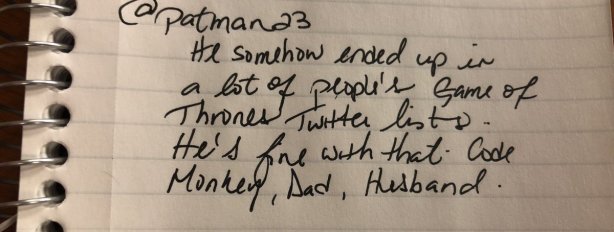 @patman23
He somehow ended up in
a lot of people's Game of
Thrones Twitter lists.
He's fine with that. Code
Monkey, Dad, Husband.